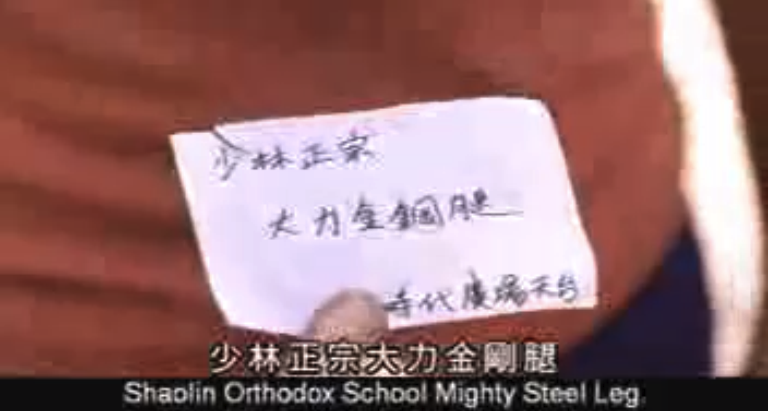 少林正宗
大力金鋼腿
時代廣場天台
少林正宗大力金剛腿
Shaolin Orthodox School Mighty Steel Leg.